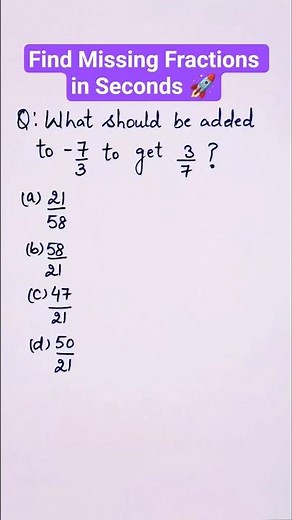 Find Missing Fractions
in Seconds 🚀
Q: What should be added
to -7/3 to get 3/7 ?
(a) 21/58
(b) 58/21
(c) 47/21
(d) 50/21